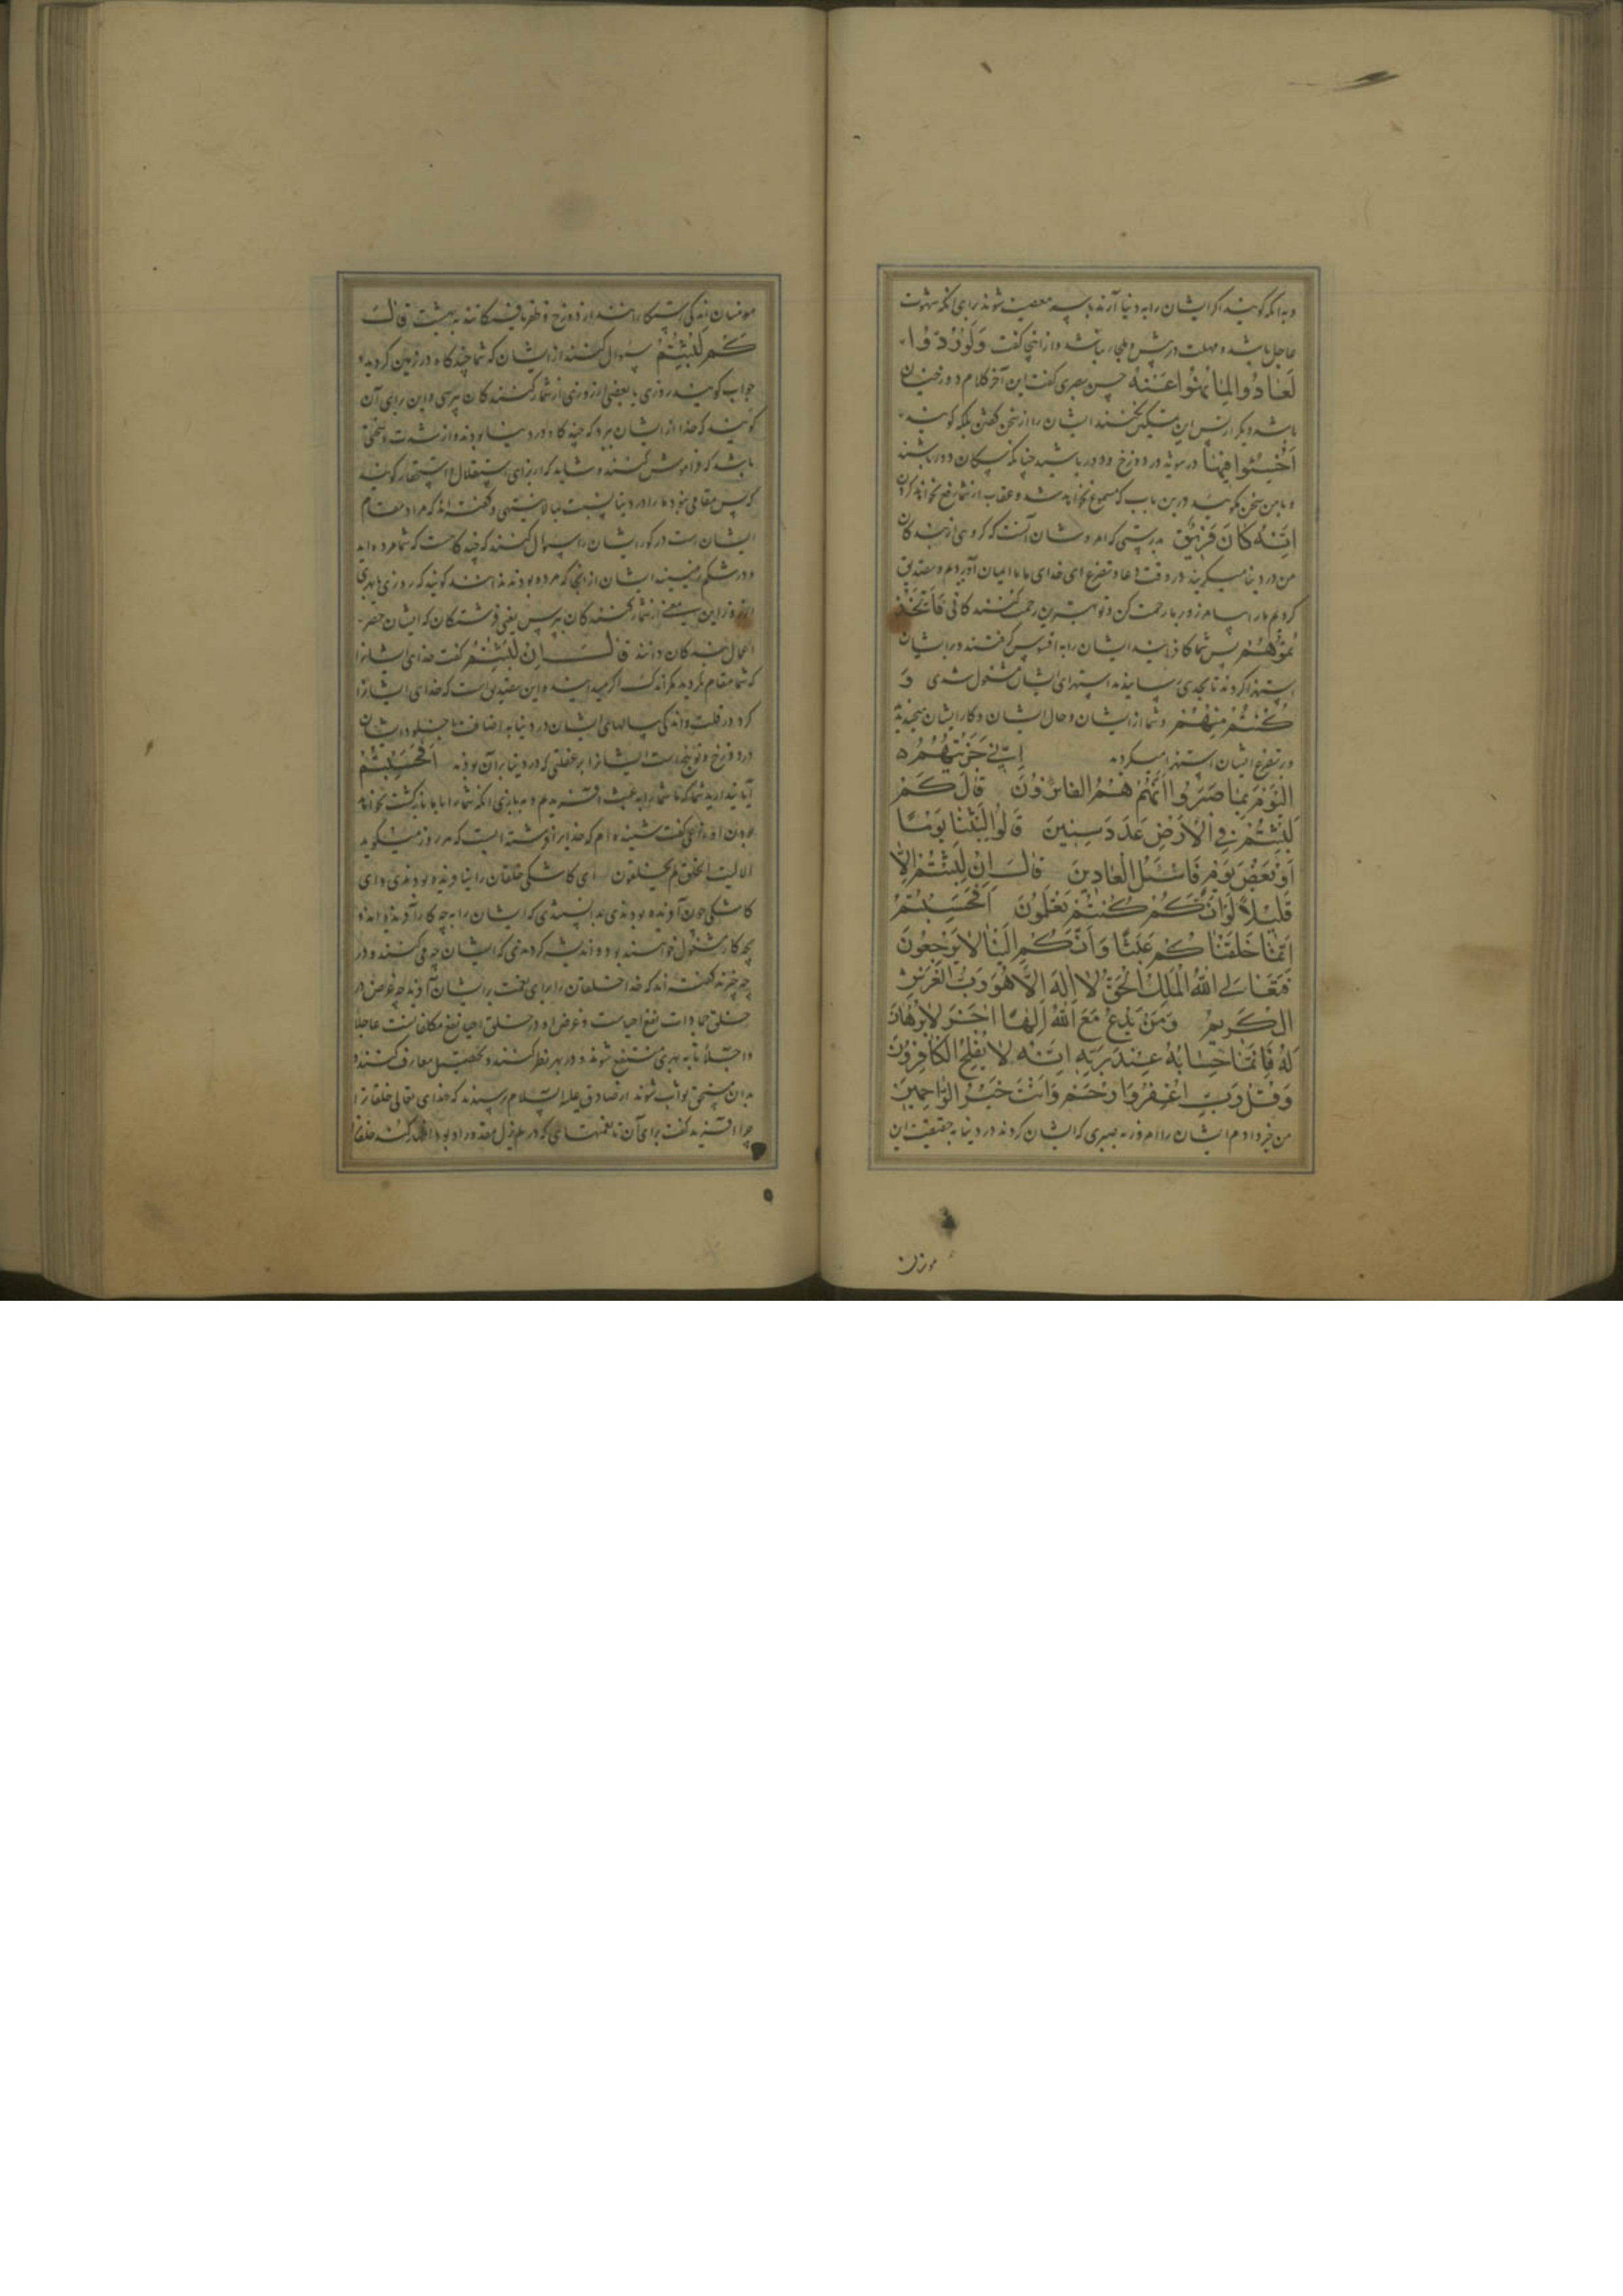 و بدانکه گویند اگر ایشان را به دنیا آرند باز سر معصیت شوند برای آنکه شهوت
عاجل باشد و مهلت در پیش و الجاء نباشد و از اینجا گفت وَلَوْ رُدُّوا
لَعَادُوا لِمَا نُهُوا عَنْهُ حسن بصری گفت این آخر کلام دوزخیان
باشد و دیگر از پس این ایشان را از سخن گفتن بلکه گویند
اَخْسَئُوا فِیهَا در دوزخ و دور باشید چنانکه سگان دور باشند
و با من سخن مگوئید درین باب که مسموع نخواهد شد و عقاب از شما رفع نخواهم کردن
اِنَّهُ كَانَ فَرِيقٌ بدرستی که امر و شان آنست که گروهی از بندگان
من در دنیا میگویند در وقت دعا و تضرع ای خدای ما ما ایمان آوردیم و تصدیق
کردیم ما را بیامرز و بر ما رحمت کن و تو بهترین رحمت کنندگانی فَاتَّخَذْ
تُمُوهُمْ پس شما که کافرانید ایشان را به افسوس گرفتید و بر ایشان
استهزا کردند تا بحدی رسانیدند استهزای ایشان مشغول شدی وَ
كُنْتُمْ مِنْهُمْ و شما از ایشان و حال ایشان و کار ایشان میخندیدید
و بر تضرع ایشان استهزا میکردید اِنِّي جَزَيْتُهُمُ
الْيَوْمَ بِمَا صَبَرُوا اَنَّهُمْ هُمُ الْفَائِزُونَ قَالَ كَمْ
لَبِثْتُمْ فِي الْاَرْضِ عَدَدَ سِنِينَ قَالُوا لَبِثْنَا يَوْمًا
اَوْ بَعْضَ يَوْمٍ فَاسْئَلِ الْعَادِّينَ قَالَ اِنْ لَبِثْتُمْ اِلَّا
قَلِيلًا لَوْ اَنَّكُمْ كُنْتُمْ تَعْلَمُونَ اَفَحَسِبْتُمْ
اَنَّمَا خَلَقْنَاكُمْ عَبَثًا وَاَنَّكُمْ اِلَيْنَا لَا تُرْجَعُونَ
فَتَعَالَى اللهُ الْمَلِكُ الْحَقُّ لَا اِلٰهَ اِلَّا هُوَ رَبُّ الْعَرْشِ
الْكَرِيمِ وَمَنْ يَدْعُ مَعَ اللهِ اِلٰهًا اٰخَرَ لَا بُرْهَانَ
لَهُ فَاِنَّمَا حِسَابُهُ عِنْدَ رَبِّهِ اِنَّهُ لَا يُفْلِحُ الْكَافِرُونَ
وَقُلْ رَبِّ اغْفِرْ وَارْحَمْ وَاَنْتَ خَيْرُ الرَّاحِمِينَ
من جزا دادم ایشان را امروز به صبری که ایشان کردند در دنیا به حقیقت این
مومنان
مومنان اند که رستگارانند از دوزخ و ظفر یافتگانند به بهشت قَالَ
كَمْ لَبِثْتُمْ سوال کنند از ایشان که شما چند گاه در زمین
جواب گویند روزی یا بعضی از روزی از شمار کنندگان پرسی و این برای آن
گویند که خدا از ایشان برد که چند گاه در دنیا بودند و از شدت و سختی
باشد که فراموش کنند و شاید که از برای استقلال و استحقار گویند
که پس مقامی نبود ما را در دنیا بنسبت و گفته اند که مراد مقام
ایشان است در گور ایشان را سوال کنند که چند گاهست که شما مرده اید
و در شکم زمینید ایشان از آنجا که مرده بودند ندانند گویند که روزی یا بهری
از روز این معنی از شمار کنندگان بپرس یعنی فرشتگان که ایشان حصر
اعمال بندگان دانند قَالَ اِنْ لَبِثْتُمْ گفت خدای ایشانرا
که شما مقام نکردید مگر اندک اگر میدانید و این تصدیق است که خدای ایشانرا
کرد در قلت و اندکی سالهای ایشان در دنیا به اضافت با خلود ایشان
در دوزخ و توبیخست ایشانرا بر غفلتی که در دنیا بر آن بودند اَفَحَسِبْتُمْ
آیا پندارید شما که ما شما را به عبث آفریدیم و به بازی و آنکه شما را با ما بازگشت نخواهد
بودن اوزاعی گفت شنیده ام که خدایرا فرشته است که هر روز میگوید
الا لیت الخلق لم یخلقون ای کاشکی خلقان را نیافریده بودندی و ای
کاشکی چون آفریده بودندی بدانستندی که ایشان را به چه کار آفریده اند و
بچه کار مشغول خواهند بود و اندیشه کردندی که ایشان چه می کنند و در
چه چیزند گفته اند که خدا خلقان را برای نعمت بر ایشان آفرید چه غرض در
خلق جمادات نفع احیاست و غرض او در خلق احیا نفع مکلفانست عاجلا
و آجلا تا به بهری منتفع شوند و در بهر نظر کنند و تحصیل معارف کنند و
بدان مستحق ثواب شوند از صادق علیه السلام پرسیدند که خدای تعالی خلقانرا
چرا آفرید گفت برای آن تا نعمتهای که در علم ازل مقدور او بود اظهار کند خلقا